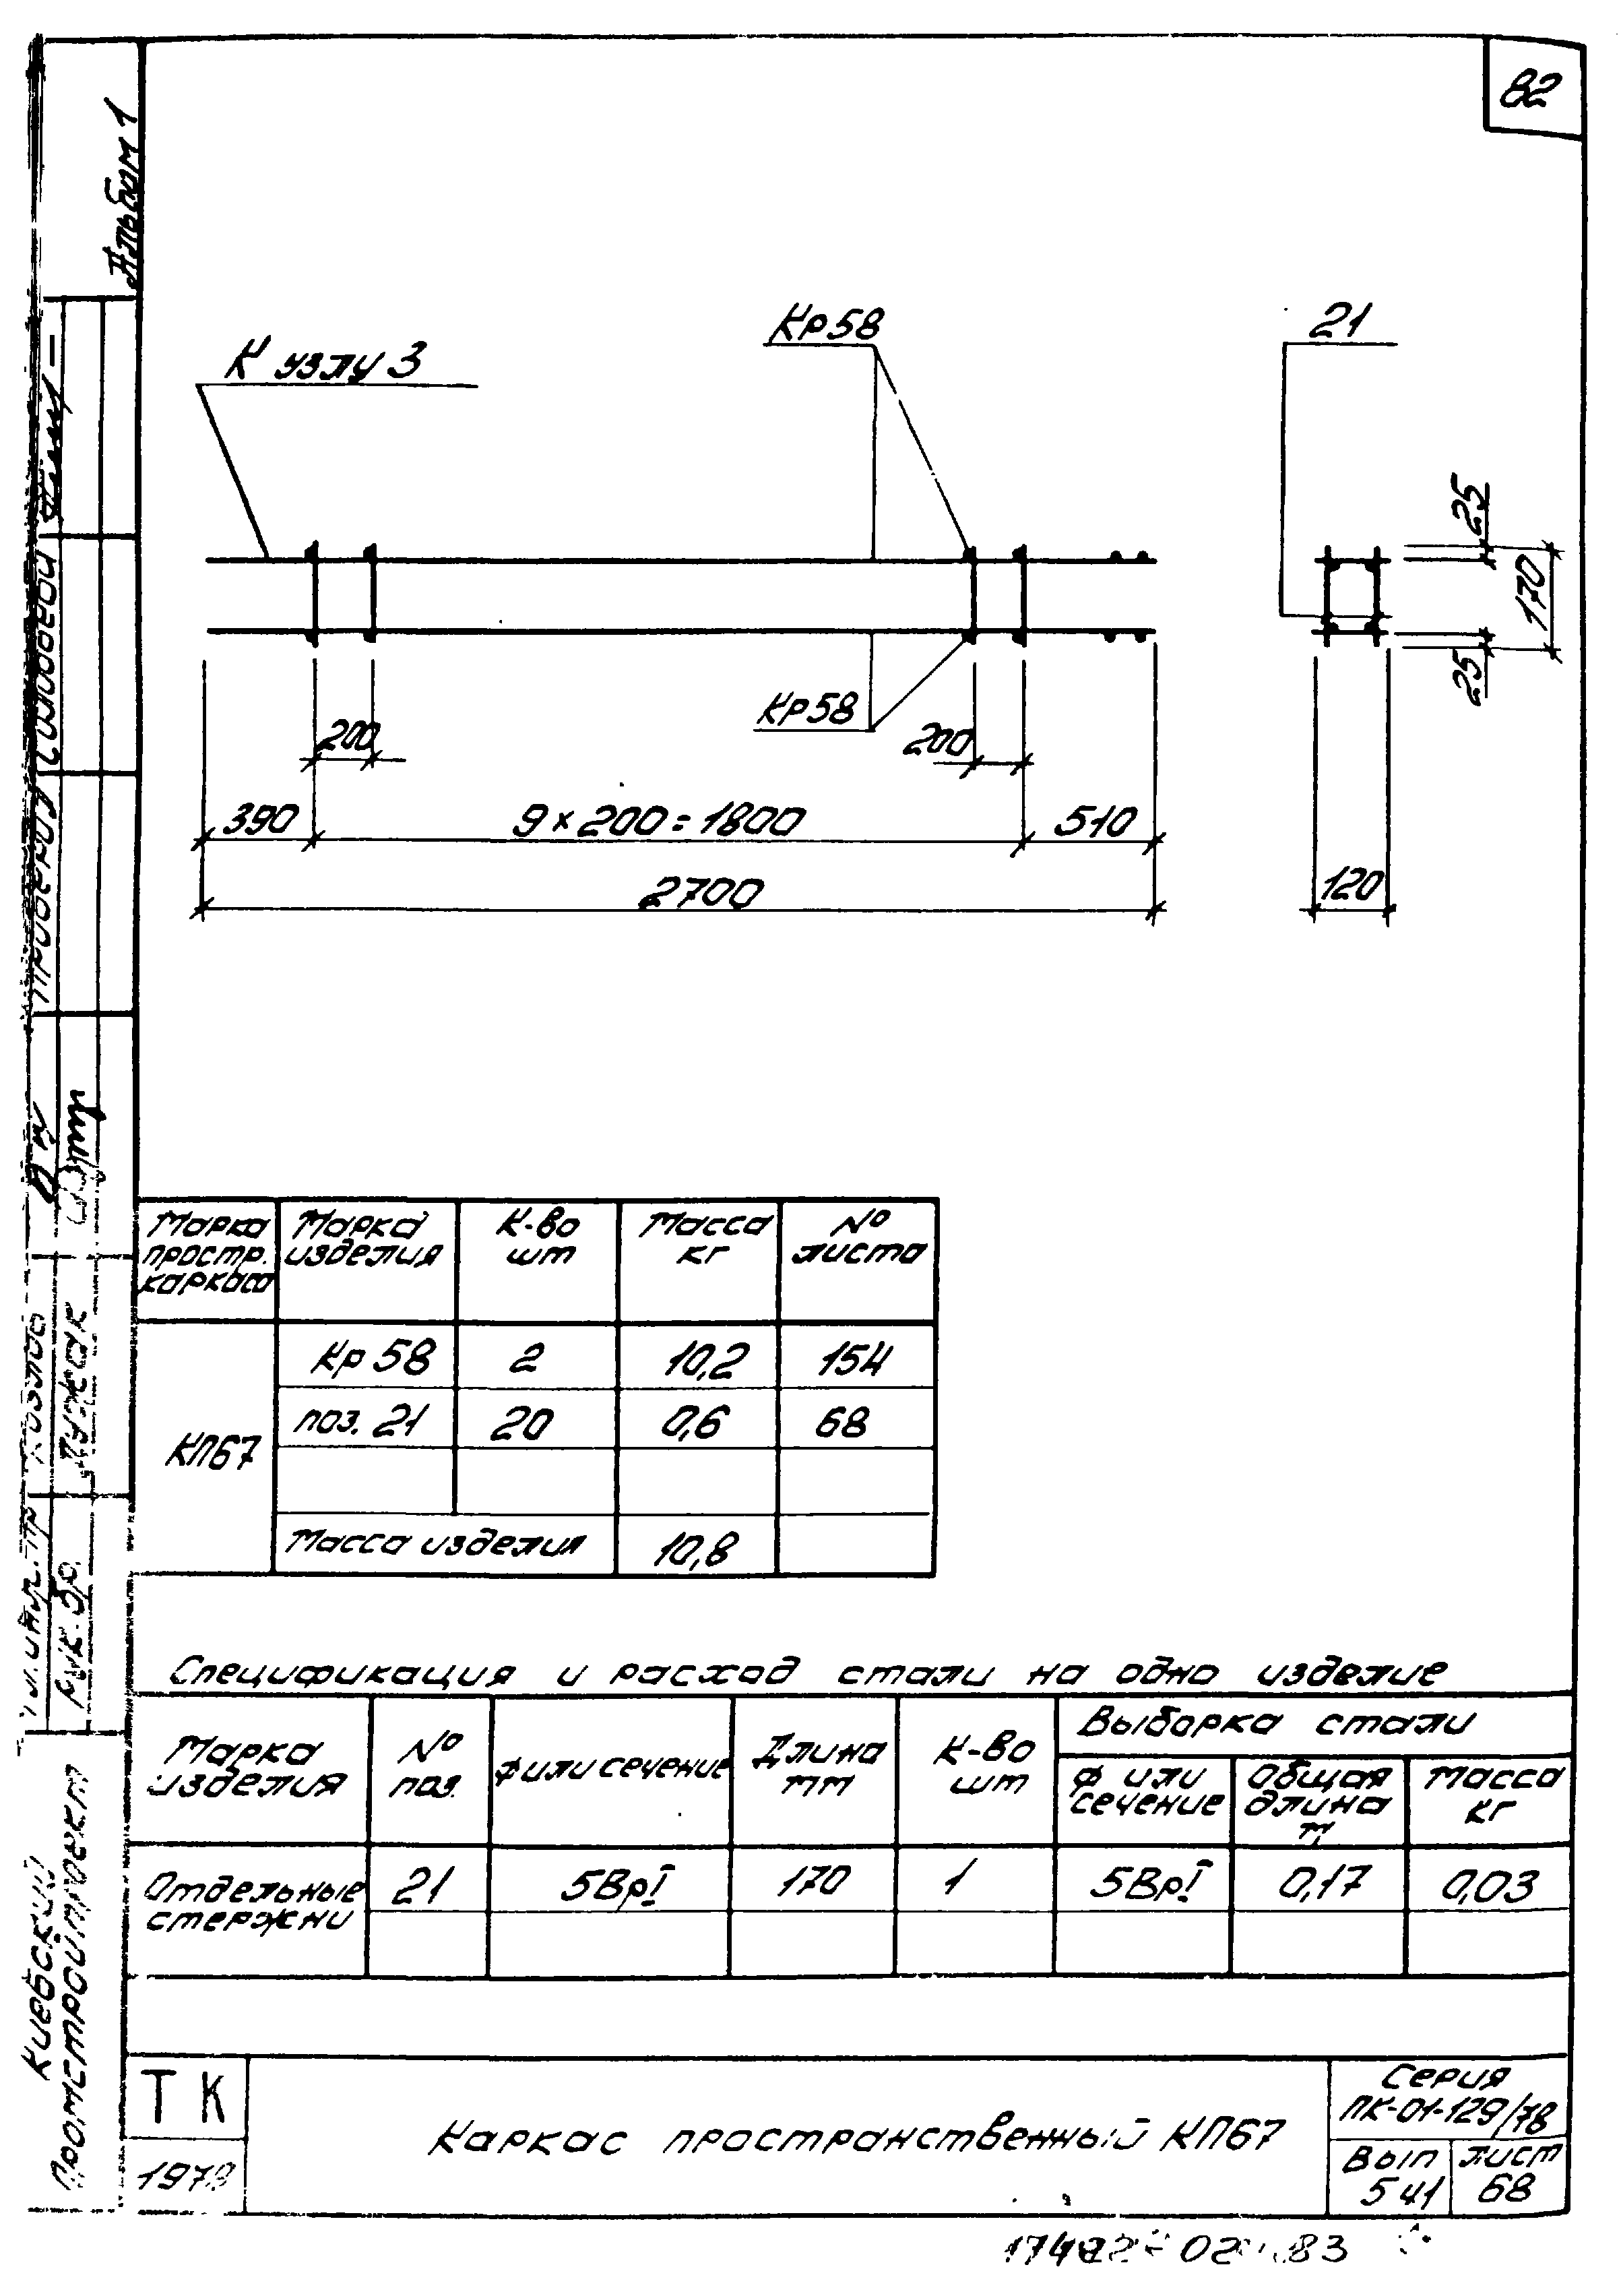 82
Альбом 1
К узлу 3
Кр 58
21
25
170
25
Кр 58
200
200
390
9 × 200 = 1800
510
2700
120
Марка простр. каркаса
Марка изделия
К-во шт
Масса кг
№ листа
КП67
Кр 58
2
10,2
154
поз. 21
20
0,6
68
Масса изделия
10,8
Спецификация и расход стали на одно изделие
Марка изделия
№ поз.
ф или сечение
Длина мм
К-во шт
Выборка стали
ф или сечение
Общая длина м
Масса кг
Отдельные стержни
21
5ВрI
170
1
5ВрI
0,17
0,03
ТК
1978
Каркас пространственный КП67
Серия
ПК-01-129/78
Вып
5 41
лист
68
Киевский
Промстройпроект
Рук. бр.
Проверил
83